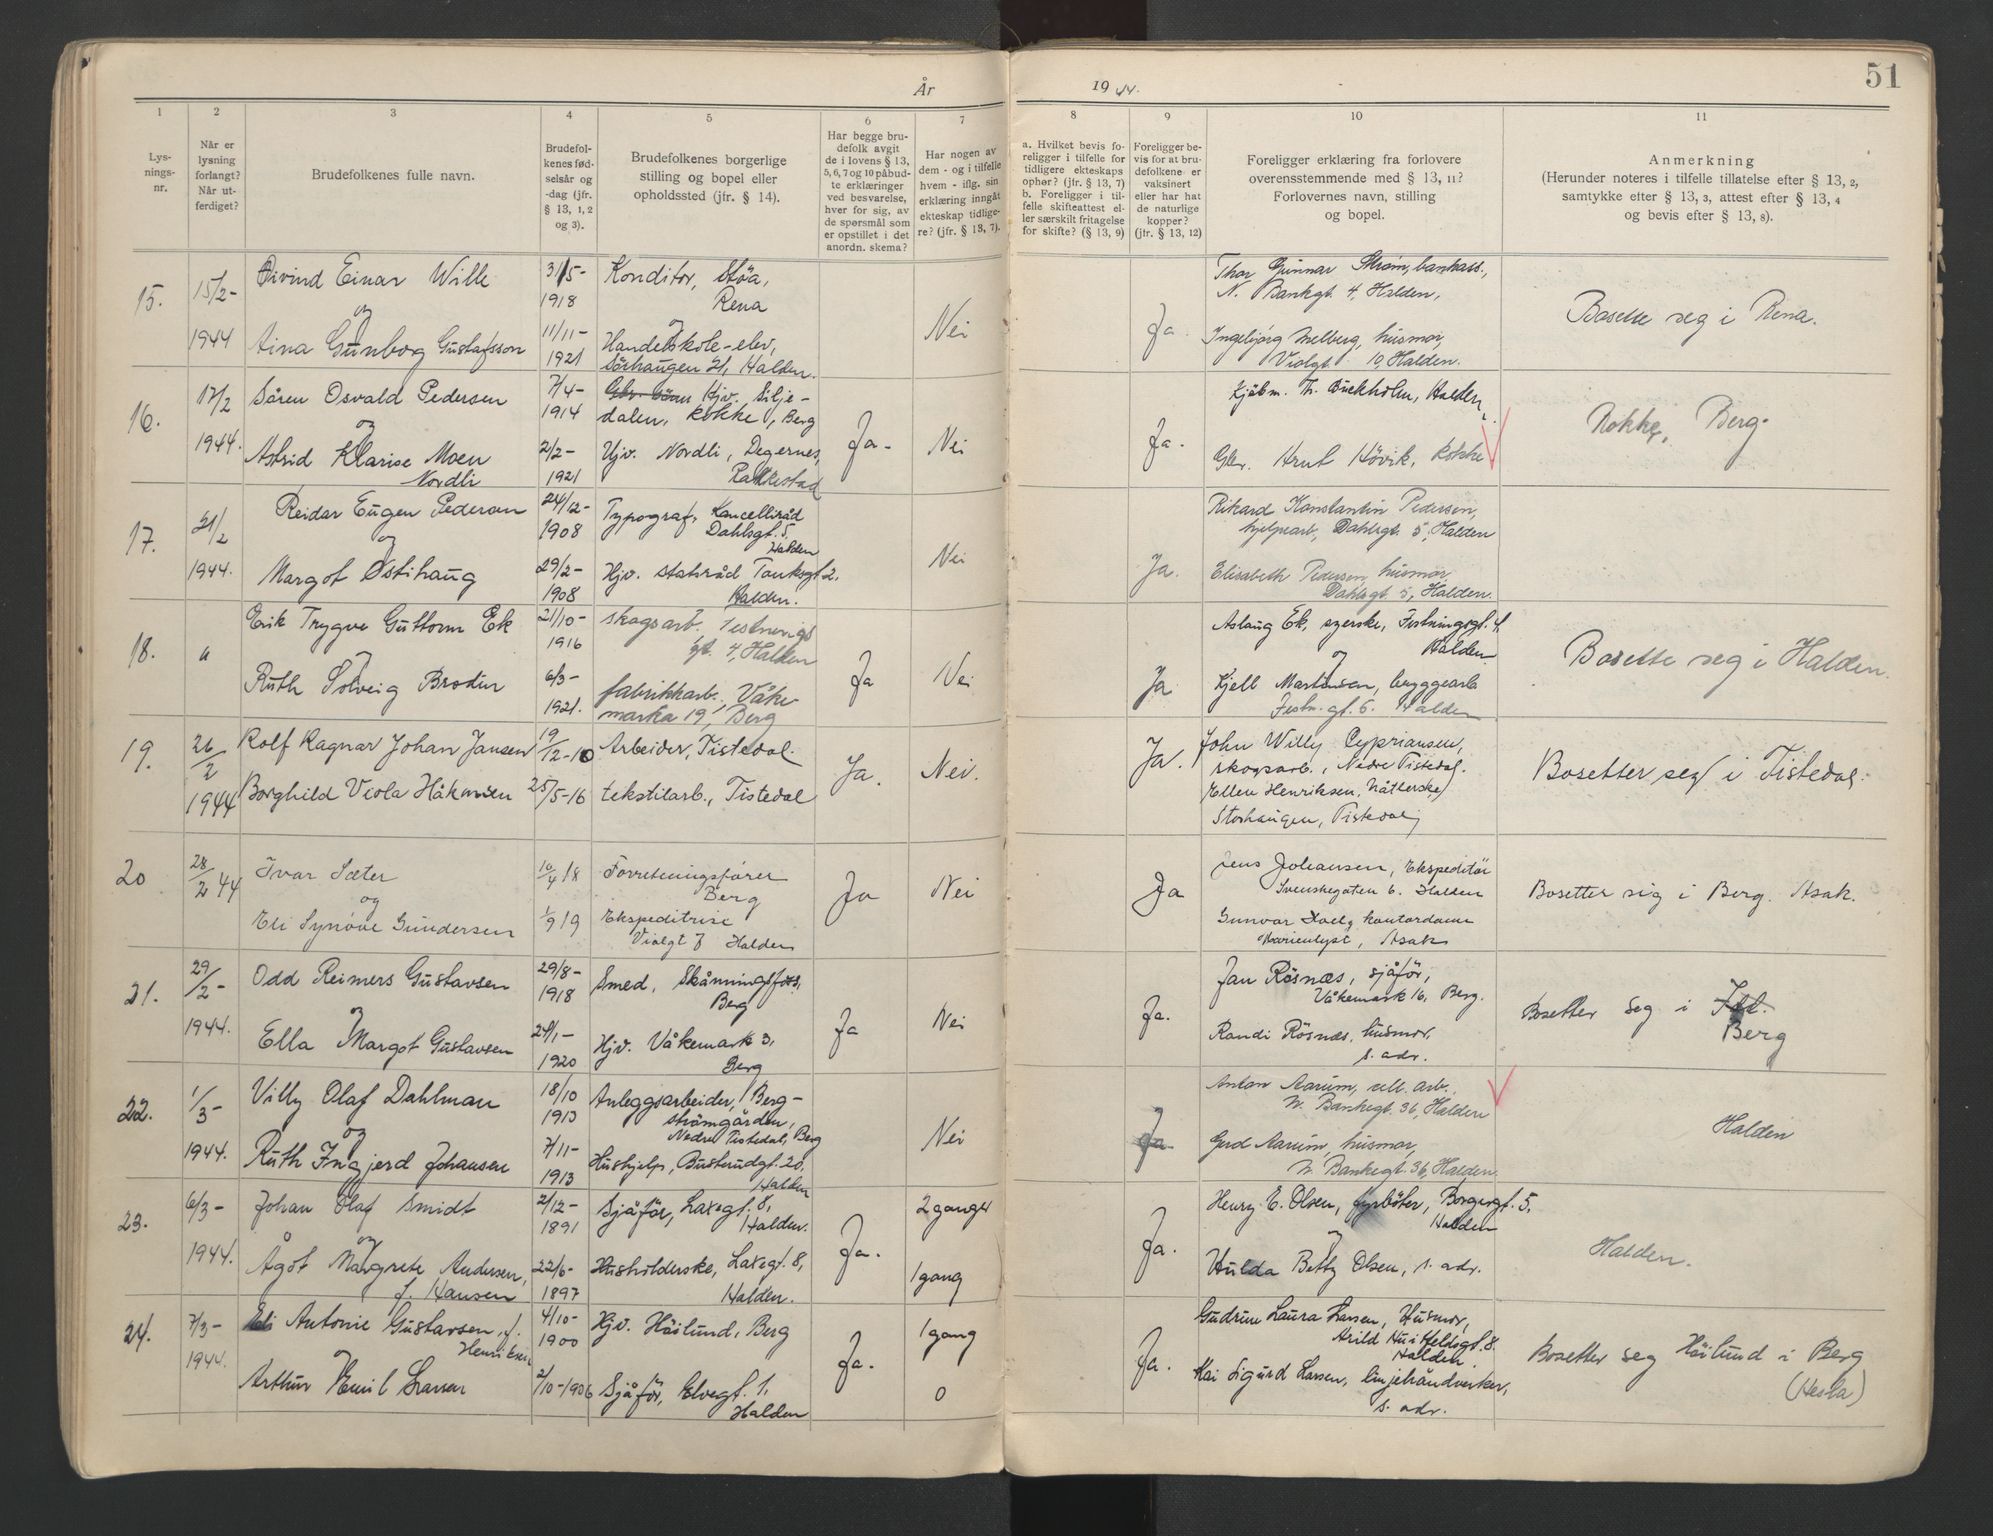 År 1944.
51
1
2
3
4
5
6
7
8
9
10
11
Lys-
nings-
nr.
Når er
lysning
forlangt?
Når ut-
ferdiget?
Brudefolkenes fulle navn.
Brudefol-
kenes fød-
selsår og
-dag (jfr.
§ 13, 1, 2
og 3).
Brudefolkenes borgerlige
stilling og bopel eller
opholdssted (jfr. § 14).
Har begge bru-
defolk avgit
de i lovens § 13,
5, 6, 7 og 10 påbud-
te erklæringer
ved besvarelse,
hver for sig, av
de spørsmål som
er opstillet i det
anordn. skema?
Har nogen av
dem - og i tilfelle
hvem - iflg. sin
erklæring inngåt
ekteskap tidlige-
re? (jfr. § 13, 7).
a. Hvilket bevis fo-
religger i tilfelle for
tidligere ekteskaps
ophør? (jfr. § 13, 7)
b. Foreligger i til-
felle skifteattest el-
ler særskilt fritagelse
for skifte? (§ 13, 9)
Foreligger be-
vis for at bru-
defolkene er
vaksinert
eller har hat
de naturlige
kopper?
(jfr. § 13, 12)
Foreligger erklæring fra forlovere
overensstemmende med § 13, 11?
Forlovernes navn, stilling
og bopel.
Anmerkning
(Herunder noteres i tilfelle tillatelse efter § 13, 2,
samtykke efter § 13, 3, attest efter § 13, 4
og bevis efter § 13, 8).
15.
15/2-
1944
Øivind Einar Wille
og
Aina Gunbog Gustafsson
31/5-
1918
11/11-
1921
Konditor, Støa,
Rena
og
Handelskole-elev,
Sörhaugen 21, Halden.
Nei
Ja
Thor Gunnar Strøm, bankass.,
N. Bankgt. 4, Halden,
Ingebjørg Melberg, husmor,
Violgt. 10, Halden.
Bosette seg i Rena.
16.
17/2
1944.
Sören Osvald Pedersen
og
Astrid Klarise Moen
Nordli
7/4-
1914
2/2-
1921
Hjv. Silje-
dalen, Rokke, Berg
Hjv. Nordli, Degernes,
Rakkestad
Ja-
Nei
Ja.
Kjøbm. Th. Buckholm, Halden,
Gbr. Arut Hövik, Rokke
Rokke, Berg.
17.
21/2
1944.
Reidar Eugen Pedersen
og
Margot Østihaug
24/12-
1908
29/2-
1908
Typograf, Kancelliråd
Dahlsgt. 5,
Halden
Hjv. statsråd Tanksgt 2,
Halden.
Nei
Ja.
Rikard Konstantin Pedersen,
hjelpearb, Dahlsgt. 5, Halden
Elisabeth Pedersen, husmor,
Dahlsgt. 5, Halden.
18.
"
Erik Trygve Guttorm Ek
og
Ruth Solveig Brodin
21/10-
1916
6/3-
1921.
skogsarb. Festnings
gt. 4, Halden
fabrikkarb., Våke-
marka 19, Berg
Ja
Nei
Ja.
Aslaug Ek, syerske, Festningsgt. 4,
Halden
og
Kjell Martinsen, bryggearb
Festn.gt. 6. Halden
Bosette seg i Halden.
19.
26/2
1944
Rolf Ragnar Johan Jansen
Borghild Viola Håkonsen
19/12-10
25/5-16
Arbeider, Tistedal.
tekstilarb., Tistedal
Ja.
Nei.
Ja.
John Willy Cypriansen,
skogsarb., Nedre Tistedal.
Ellen Henriksen, nåtlerske,
Storhaugen, Tistedal
Bosetter seg i Tistedal.
20
28/2 44
Ivar Sæter
og
Eli Synöve Gundersen
10/4 18
1/9 19
Forretningsfører
Berg
Ekspeditrise
Violgt 7 Halden
Ja
Nei
Ja
Jens Johansen, Ekspeditör
Svenskegaten 6. Halden
Gunvor Hoel, kontordame
Marienlyst, Asak
Bosetter sig i Berg. Asak.
21.
29/2-
1944.
Odd Reimers Gustavsen
og
Ella Margot Gustavsen
29/8-
1918
24/1-
1920
Smed, Skånningsfoss,
Berg
Hjv. Våkemark 3,
Berg
Ja
Nei
Ja.
Jan Rösnæs, sjåför,
Våkemark 16, Berg.
Randi Rösnæs, husmor,
s. adr.
Bosetter seg i
Berg
22.
1/3-
1944.
Villy Olaf Dahlman
og
Ruth Ingjerd Johansen
18/10
1913
7/11-
1913
Anleggsarbeider, Berg-
strömgården,
Nedre Tistedal, Berg
Hushjelp, Busterudgt. 20,
Halden
Nei
Ja.
Anton Aarum, sell. arb.,
N. Bankegt. 36, Halden
Gerd Aarum, husmor,
N. Bankegt. 36, Halden.
Halden
23.
6/3-
1944.
Johan Olaf Smidt
og
Ågot Margrete Andersen,
f. Hansen
2/12-
1891
22/6-
1897
Sjåför, Laxegt. 8,
Halden.
Husholderske, Laxegt. 8,
Halden.
Ja.
2 ganger
1 gang
Ja.
Henry E. Olsen, fyrböter, Borgergt. 5,
Halden
og
Hulda Betty Olsen, s. adr.
Halden.
24.
7/3-
1944.
Eli Antonie Gustavsen, f.
Henriksen
Arthur Emil Larsen
4/10-
1900
2/10-1906
Hjv. Höilund, Berg
Sjåför, Elvegt. 1,
Halden
Ja.
1 gang
0
Ja.
Gudrun Laura Larsen, Husmor,
Arild Huitfeldsgt. 8.
Halden.
Kai Sigurd Larsen, linjehandverker,
s. adr.
Bosetter seg Höilund i Berg
(Hesla)